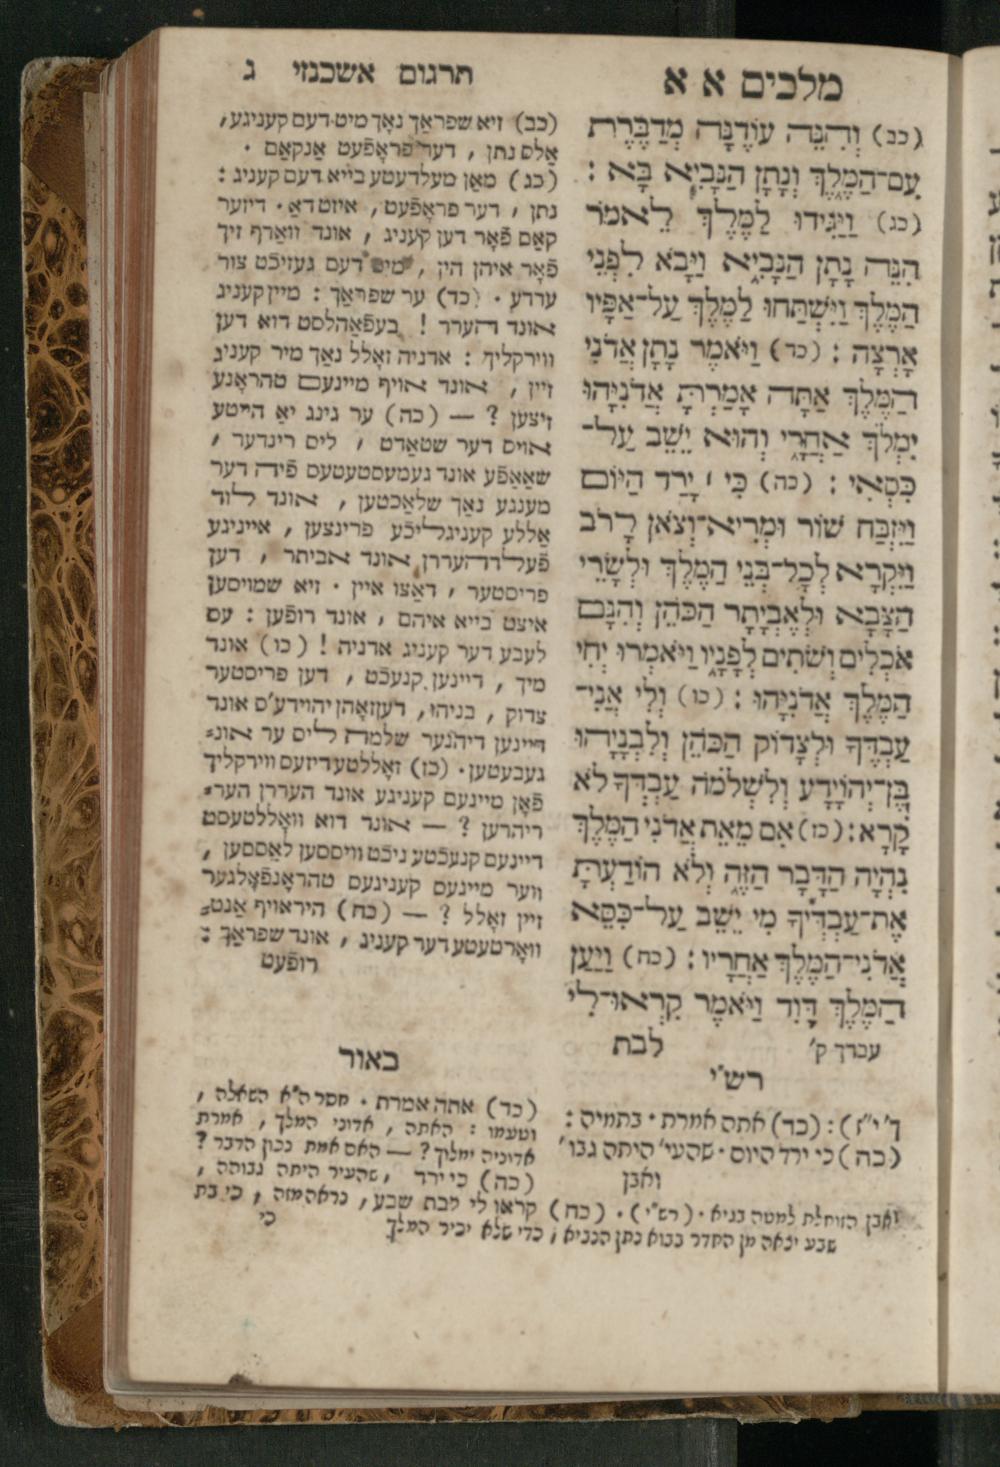 מלכים א א
(כב) וְהִנֵּה עוֹדֶנָּה מְדַבֶּרֶת
עִם־הַמֶּלֶךְ וְנָתָן הַנָּבִיא בָּא :
(כג) וַיַּגִּידוּ לַמֶּלֶךְ לֵאמֹר
הִנֵּה נָתָן הַנָּבִיא וַיָּבֹא לִפְנֵי
הַמֶּלֶךְ וַיִּשְׁתַּחוּ לַמֶּלֶךְ עַל־אַפָּיו
אָרְצָה : (כד) וַיֹּאמֶר נָתָן אֲדֹנִי
הַמֶּלֶךְ אַתָּה אָמַרְתָּ אֲדֹנִיָּהוּ
יִמְלֹךְ אַחֲרָי וְהוּא יֵשֵׁב עַל־
כִּסְאִי : (כה) כִּי ׀ יָרַד הַיּוֹם
וַיִּזְבַּח שׁוֹר וּמְרִיא־וְצֹאן לָרֹב
וַיִּקְרָא לְכָל־בְּנֵי הַמֶּלֶךְ וּלְשָׂרֵי
הַצָּבָא וּלְאֶבְיָתָר הַכֹּהֵן וְהִנָּם
אֹכְלִים וְשֹׁתִים לְפָנָיו וַיֹּאמְרוּ יְחִי
הַמֶּלֶךְ אֲדֹנִיָּהוּ : (כו) וְלִי אֲנִי־
עַבְדֶּךָ וּלְצָדֹק הַכֹּהֵן וְלִבְנָיָהוּ
בֶן־יְהוֹיָדָע וְלִשְׁלֹמֹה עַבְדְּךָ לֹא
קָרָא : (כז) אִם מֵאֵת אֲדֹנִי הַמֶּלֶךְ
נִהְיָה הַדָּבָר הַזֶּה וְלֹא הוֹדַעְתָּ
אֶת־עַבְדְּיךָ מִי יֵשֵׁב עַל־כִּסֵּא
אֲדֹנִי־הַמֶּלֶךְ אַחֲרָיו : (כח) וַיַּעַן
הַמֶּלֶךְ דָּוִד וַיֹּאמֶר קִרְאוּ־לִי
עבדך ק׳ לבת
תרגום אשכנזי ג
(כב) זיא שפראַך נאָך מיט דעם קעניגע,
אַלס נתן , דער פּראָפֿעט אַנקאַם .
(כג) מאַן מעלדעטע בייא דעם קעניג :
נתן , דער פּראָפֿעט, איזט דאַ . דיזער
קאַם פֿאָר דען קעניג , אונד וואַרף זיך
פֿאָר איהן הין , מיט דעם געזיכֿט צור
ערדע . (כד) ער שפּראַך : מיין קעניג
אונד הערר ! בעפֿאָהלסט דוא דען
ווירקליך : אדניה זאָלל נאַך מיר קעניג
זיין , אונד אויף מיינעם טהראָנע
זיצען ? — (כה) ער גינג יאַ הייטע
אויס דער שטאַדט , ליס רינדער ,
שאַאַפֿע אונד געמעסטעטעס פֿיה דער
מענגע נאַך שלאַכטען , אונד לוד
אַללע קעניגליכֿע פּרינצען , אייניגע
פֿעלדהעררן אונד אביתר , דען
פּריסטער , דאַצו איין . זיא שמויסען
איצט בייא איהם , אונד רופֿען : עס
לעבע דער קעניג אדניה ! (כו) אונד
מיך , דיינען קנעכֿט , דען פּריסטער
צדוק , בניהו, דען זאָהן יהוידע'ס אונד
דיינען דיהנער שלמה ליס ער אונ=
געבעטען. (כז) זאָללטע דיזעס ווירקליך
פֿאָן מיינעם קעניגע אונד העררן הער=
ריהרען ? — אונד דוא וואָללטעסט
דיינעם קנעכֿטע ניכֿט וויססען לאַססען ,
ווער מיינעם קעניגעס טהראָנפֿאָלגער
זיין זאָלל ? — (כח) היראויף אַנט=
וואָרטעטע דער קעניג , אונד שפּראַך :
רופֿעט
רש"י
ד' י"ז) : (כד) אתה אמרת . בתמיה :
(כה) כי ירד היום . שהעי' היתה גבו'
ואבן
באור
(כד) אתה אמרת . חסר ה"א השאלה ,
וטעמו : האתה , אדוני המלך , אמרת
אדוניה ימלוך ? — האם אמת נכון הדבר ?
(כה) כי ירד , שהעיר היתה גבוהה ,
ואבן הזוחלת למטה בגיא . (רש"י) . (כח) קראו לי לבת שבע, נראה מזה , כי בת
שבע יצאה מן החדר בבוא נתן הנביא ; כדי שלא יכיר המלך כי